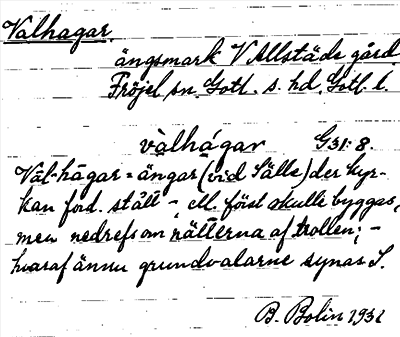 Valhagar.
ängsmark V Allstäde gård
Fröjel sn. Gotl. s. hd. Gotl. l.
vàlhágar G31: 8.
Väl-hagar = ängar (vid Sälle) der kyr-
kan ford. stått -, ell. först skulle byggas,
men nedrefs om nätterna af trollen; -
hvaraf ännu grundvalarne synas S.
B. Bolin 1931